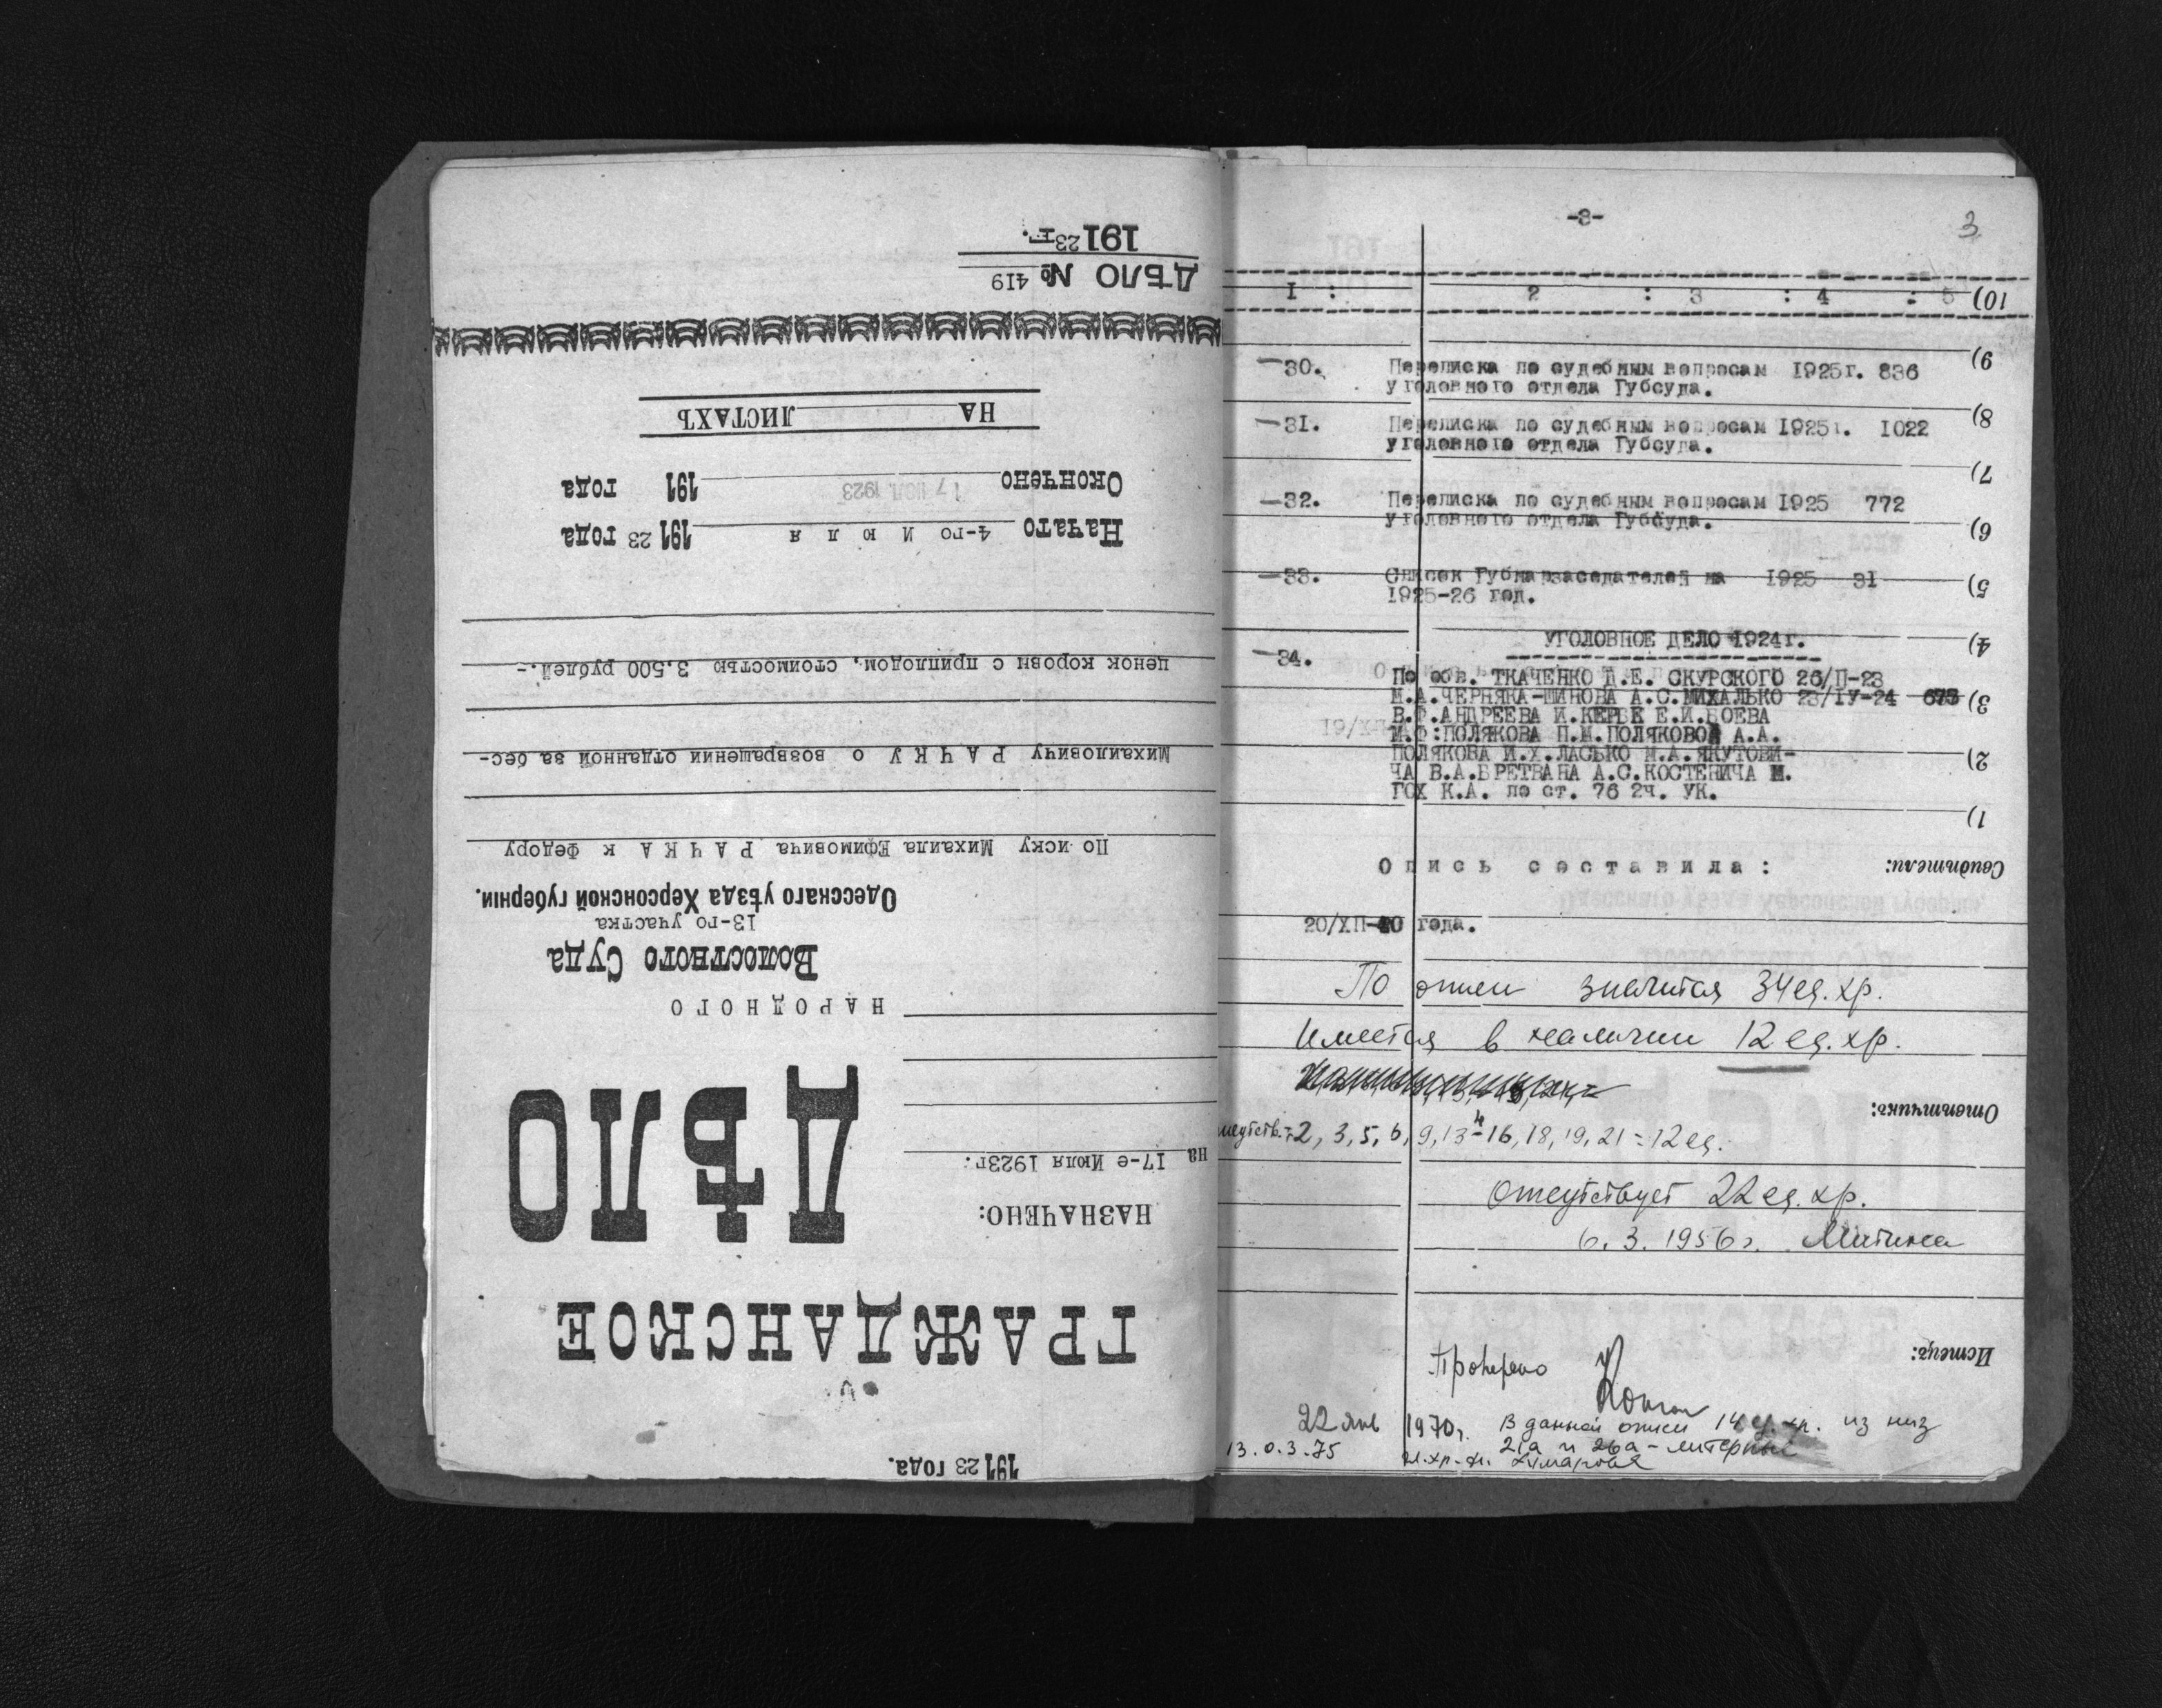 191 23 года.
ГРАЖДАНСКОЕ
ДѢЛО
НАЗНАЧЕНО:
на 17-е Июля 1923г.
НАРОДНОГО
Волостного Суда
13-го участка
Одесскаго уѣзда Херсонской губерніи.
По иску Михаила Ефимовича РАЧКА к Федору
Михайловичу РАЧКУ о возвращении отданной за бес-
ценок коровы с приплодом, стоимостью 3.500 рублей.-
Начато 4-го Июля 191 23 года
Окончено 17 ИЮЛ 1923 191 года
НА ЛИСТАХЪ
ДѢЛО № 419
191 23 г.
-3-
3
1 : 2 : 3 : 4 : 5
—30. Переписка по судебным вопросам 1925г. 836
уголовного отдела Губсуда.
—31. Переписка по судебным вопросам 1925г. 1022
уголовного отдела Губсуда.
—32. Переписка по судебным вопросам 1925 772
уголовного отдела Губсуда.
—33. Список Губнарзаседателей на 1925 31
1925-26 год.
УГОЛОВНОЕ ДЕЛО 1924г.
—34.
По обв. ТКАЧЕНКО Д.Е. СКУРСКОГО 26/П-23
М.А.ЧЕРНЯКА-ШИНОВА А.С.МИХАЛЬКО 23/IУ-24 673
В.Ф.АНДРЕЕВА И.КЕРБЕ Е.И.БОЕВА
М.Ф:ПОЛЯКОВА П.М.ПОЛЯКОВОЙ А.А.
ПОЛЯКОВА И.Х.ЛАСЬКО М.А.ЯКУТОВИ-
ЧА В.А.БРЕТВАНА А.С.КОСТЕНИЧА М.
ГОХ К.А. по ст. 76 2ч. УК.
Опись составила:
20/ХП-40 года.
По описи значится 34 ед. хр.
Имеется в наличии 12 ед. хр.
2, 3, 5, 6, 9, 13-16, 18, 19, 21 = 12 ед.
Отсутствует 22 ед. хр.
6. 3. 1956г. Митина
Проверено
22 янв 1970г. В данной описи 14 ед. хр. из них
13.03.75 21а и 26а - литерные
Истецъ:
Отвѣтчикъ:
Свидѣтели:
1)
2)
3)
4)
5)
6)
7)
8)
9)
10)